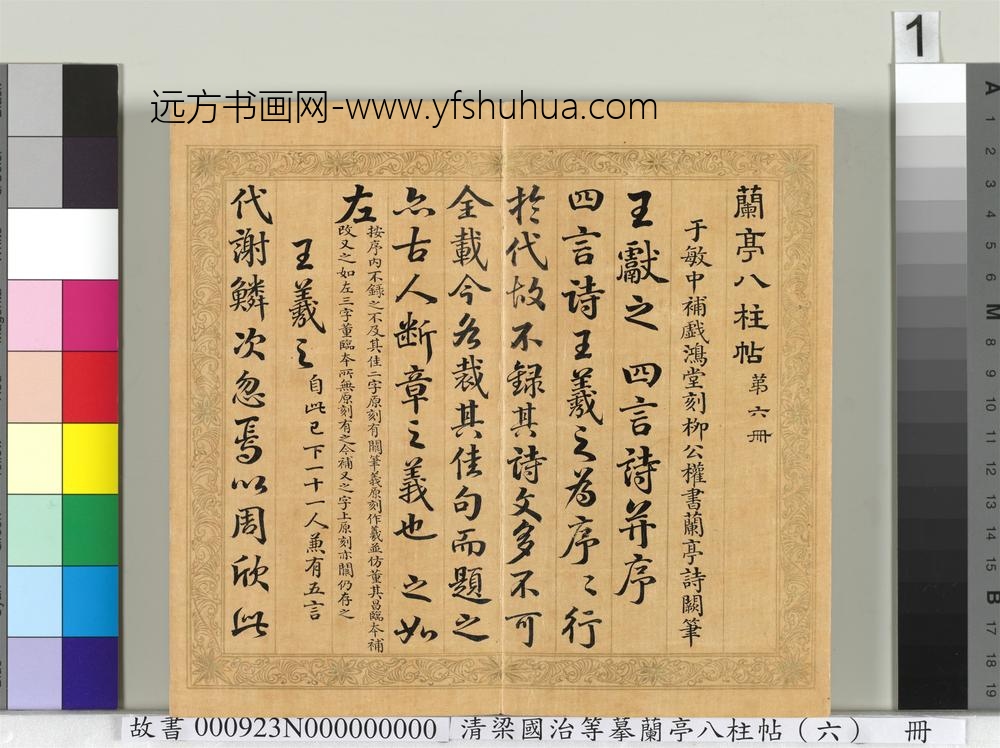 远方书画网-www.yfshuhua.com
1
蘭亭八柱帖 苐六冊
于敏中補戲鴻堂刻柳公權書蘭亭詩闕筆
王獻之 四言詩并序
四言詩王羲之為序〻行
於代故不録其詩文多不可
全載今各裁其佳句而題之
亦古人斷章之義也 之如
左
按序内不錄之不及其佳二字原刻有闕筆義原刻作羲並仿董其昌臨本補
改又之如左三字董臨本所無原刻有之今補又之字上原刻亦闕仍存之
王羲之 自此已下一十一人兼有五言
代謝鱗次忽焉以周欣此
故書 000923N000000000 清梁國治等摹蘭亭八柱帖（六） 冊
A 1 2 3 4 5 6 M 8 9 10 11 12 13 14 15 B 17 18 19